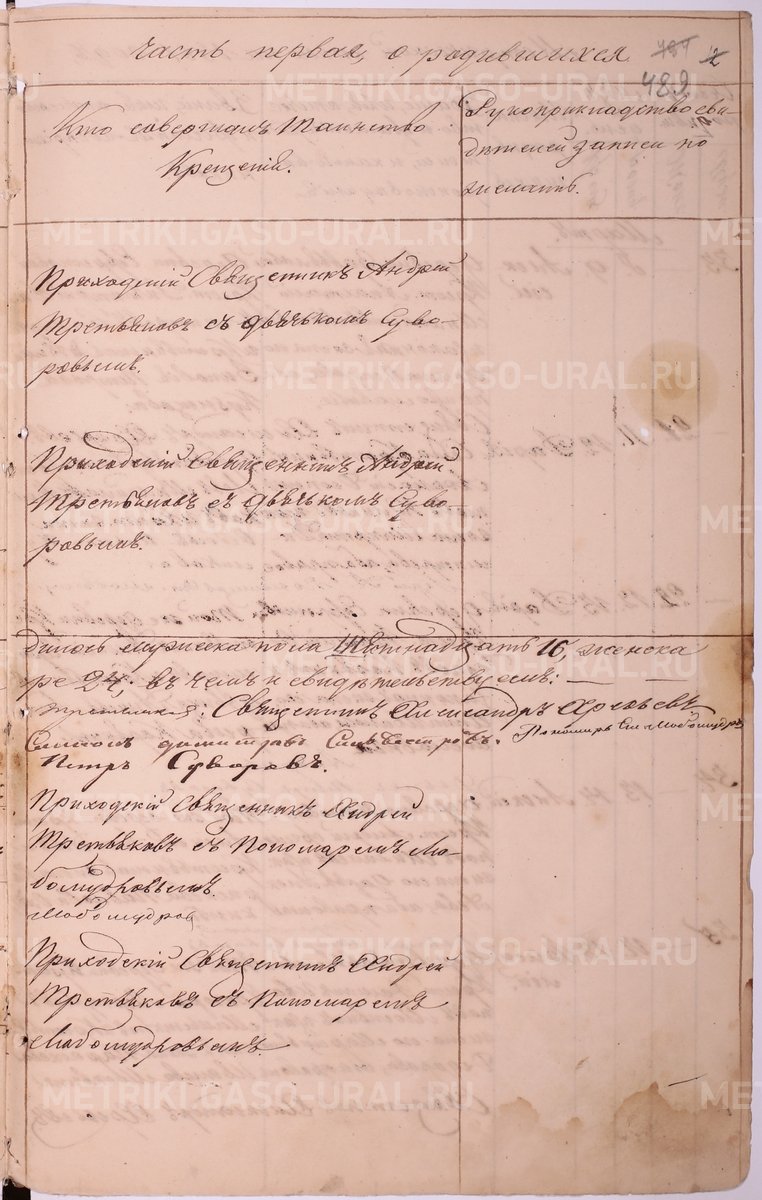 Часть первая, о родившихся
489
Кто совершалъ таинство
Крещенія.
Рукоприкладство сви-
дѣтелей записи по
желанію.
Приходскій Священникъ Андрей
Третьяковъ съ дьячькомъ Суво-
ровымъ.
Приходскій Священникъ Андрей
Третьяковъ съ дьячькомъ Суво-
ровымъ.
дилось мужеска пола Шестнадцать 16, женска
24; въ чемъ и свидѣтельствуемъ:
Священникъ Александръ
Пономарь
Димитрій
Петръ Суворовъ.
Приходскій Священникъ Андрей
Третьяковъ съ Пономаремъ Лю-
бомудровымъ.
Любомудров
Приходскій Священникъ Андрей
Третьяковъ съ Пономаремъ
Любомудровымъ.
METRIKI.GASO-URAL.RU